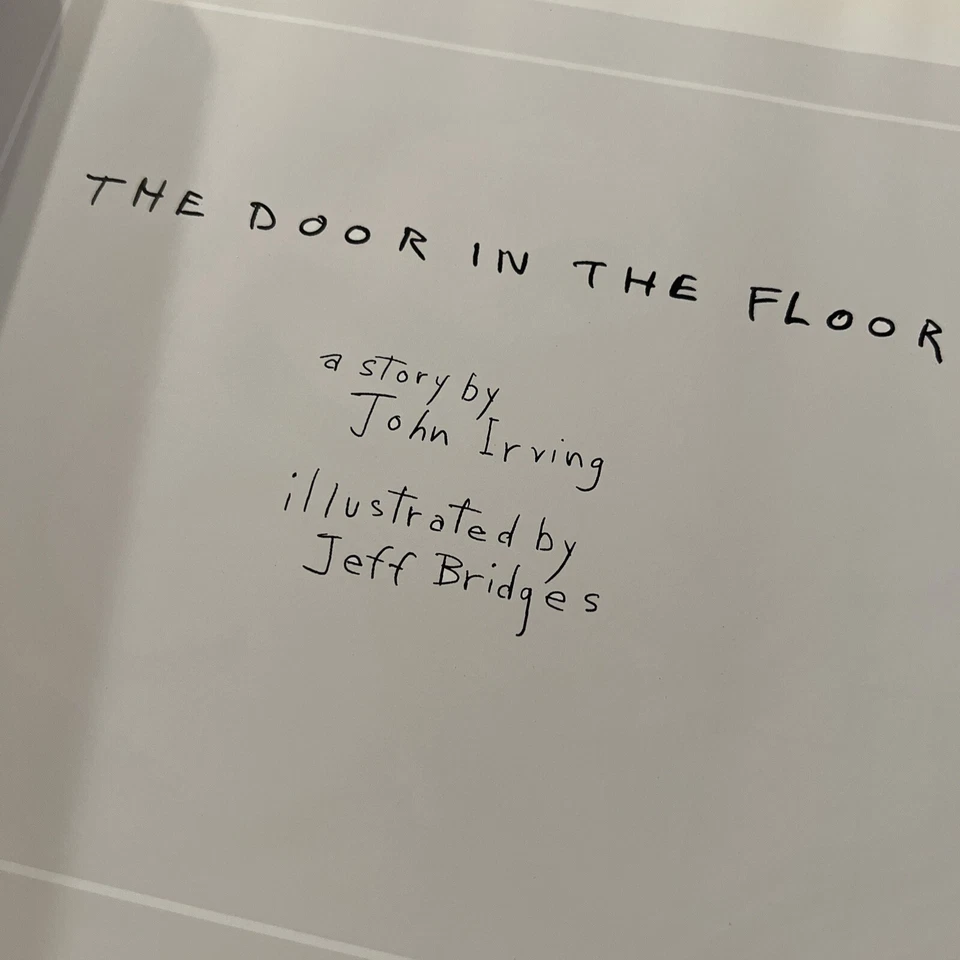 THE DOOR IN THE FLOOR
a story by
John Irving
illustrated by
Jeff Bridges